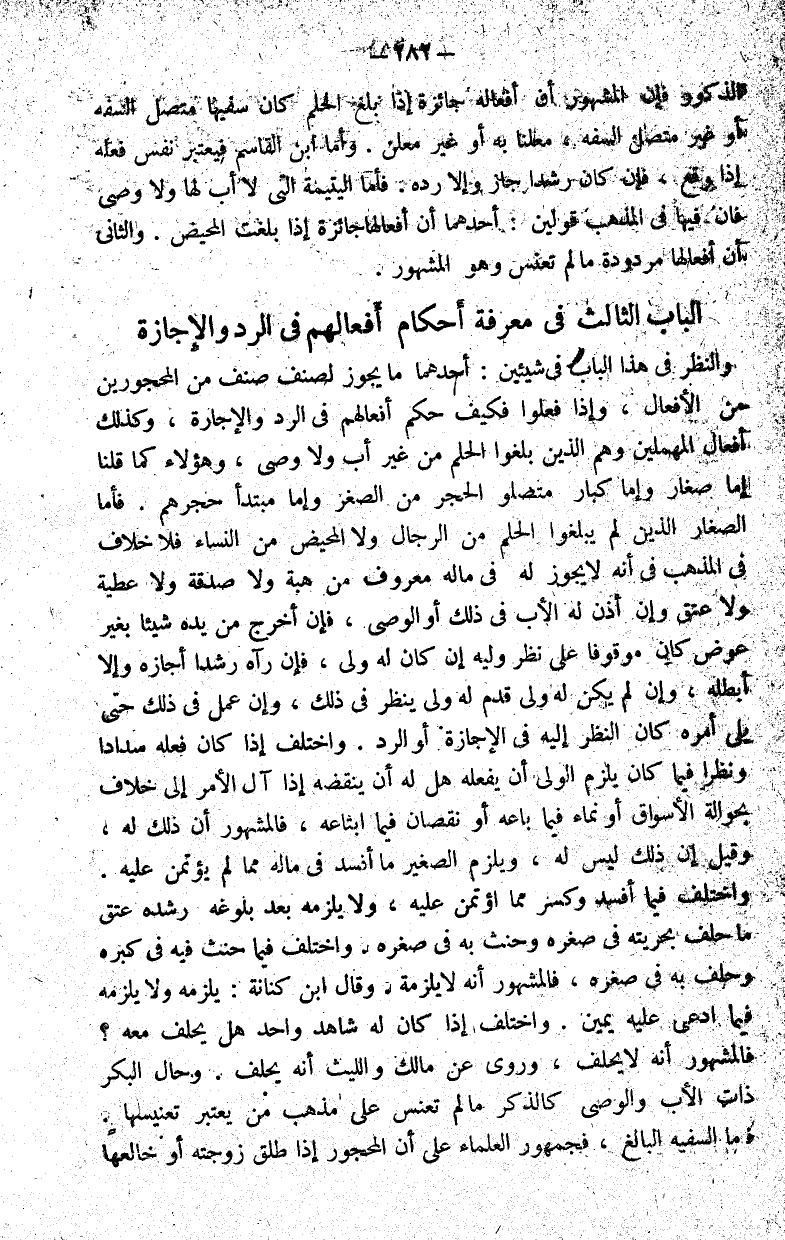 — ٢٨٢ —
الذكور فإن المشهور أن أفعاله جائزة إذا بلغ الحلم كان سفيها متصل السفه
أو غير متصل السفه ، معلنا به أو غير معلن . وأما ابن القاسم فيعتبر نفس فعله
إذا وقع ، فإن كان رشدا جاز وإلا رده . فأما اليتيمة التى لا أب لها ولا وصى
فان فيها فى المذهب قولين : أحدهما أن أفعالها جائزة إذا بلغت المحيض . والثانى
أن أفعالها مردودة مالم تعنس وهو المشهور .
الباب الثالث فى معرفة أحكام أفعالهم فى الرد والإجازة
والنظر فى هذا الباب فى شيئين : أحدهما ما يجوز لصنف صنف من المحجورين
من الأفعال ، وإذا فعلوا فكيف حكم أفعالهم فى الرد والإجارة ، وكذلك
أفعال المهملين وهم الذين بلغوا الحلم من غير أب ولا وصى ، وهؤلاء كما قلنا
إما صغار وإما كبار متصلو الحجر من الصغر وإما مبتدأ حجرهم . فأما
الصغار الذين لم يبلغوا الحلم من الرجال ولا المحيض من النساء فلا خلاف
فى المذهب فى أنه لايجوز له فى ماله معروف من هبة ولا صدقة ولا عطية
ولا عتق وإن أذن له الأب فى ذلك أو الوصى ، فإن أخرج من يده شيئا بغير
عوض كان موقوفا على نظر وليه إن كان له ولى ، فإن رآه رشدا أجازه وإلا
أبطله ، وإن لم يكن له ولى قدم له ولى ينظر فى ذلك ، وإن عمل فى ذلك حتى
يلى أمره كان النظر إليه فى الإجازة أو الرد . واختلف إذا كان فعله سدادا
ونظرا فيما كان يلزم الولى أن يفعله هل له أن ينقضه إذا آل الأمر إلى خلاف
بحوالة الأسواق أو نماء فيما باعه أو نقصان فيما ابتاعه ، فالمشهور أن ذلك له ،
وقيل إن ذلك ليس له ، ويلزم الصغير ما أفسد فى ماله مما لم يؤتمن عليه .
واختلف فيما أفسد وكسر مما اؤتمن عليه ، ولا يلزمه بعد بلوغه رشده عتق
ما حلف بحريته فى صغره وحنث به فى صغره . واختلف فيما حنث فيه فى كبره
وحلف به فى صغره ، فالمشهور أنه لايلزمة . وقال ابن كنانة : يلزمه ولا يلزمه
فيما ادعى عليه يمين . واختلف إذا كان له شاهد واحد هل يحلف معه ؟
فالمشهور أنه لايحلف ، وروى عن مالك والليث أنه يحلف . وحال البكر
ذات الأب والوصى كالذكر مالم تعنس على مذهب من يعتبر تعنيسها .
فأما السفيه البالغ ، فجمهور العلماء على أن المحجور إذا طلق زوجته أو خالعها